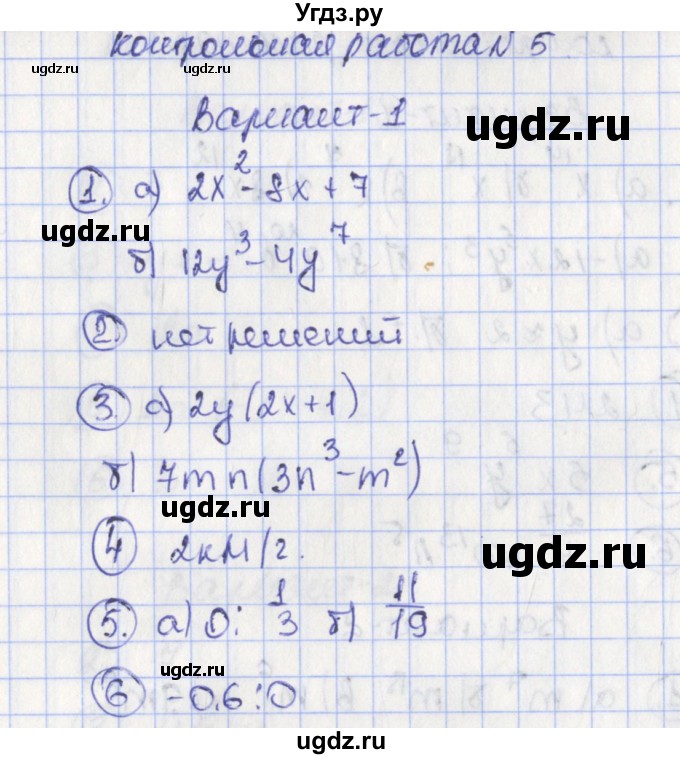 Угдз.ру
контрольная работа N 5
ugdz.ru ugdz.ru
Вариант-1
ugdz.ru
1. а) 2x² - 8x + 7
ugdz.ru
б) 12y³ - 4y⁷
2. нет решений
3. а) 2y(2x+1)
б) 7mn(3n³ - m²)
ugdz.ru
4 2км/г.
ugdz.ru
5. а) 0; 1/3 б) 11/19
ugdz.ru
6 -0.6; 0
ugdz.ru